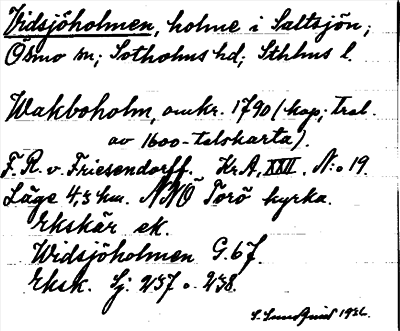 Vidsjöholmen, holme i Saltsjön;
Ösmo sn; Sotholms hd; Sthlms l.
Wakboholm, omkr. 1790 (kop; trol.
av 1600-talskarta).
F. R. v. Friesendorff. Kr A, XXII, N:o 19.
Läge 4,3 km. NNÖ Torö kyrka.
Ekskär ek.
Widsjöholmen G. 67.
Eksk. Sj. 237 o. 238.
S. Sundquist 1936.